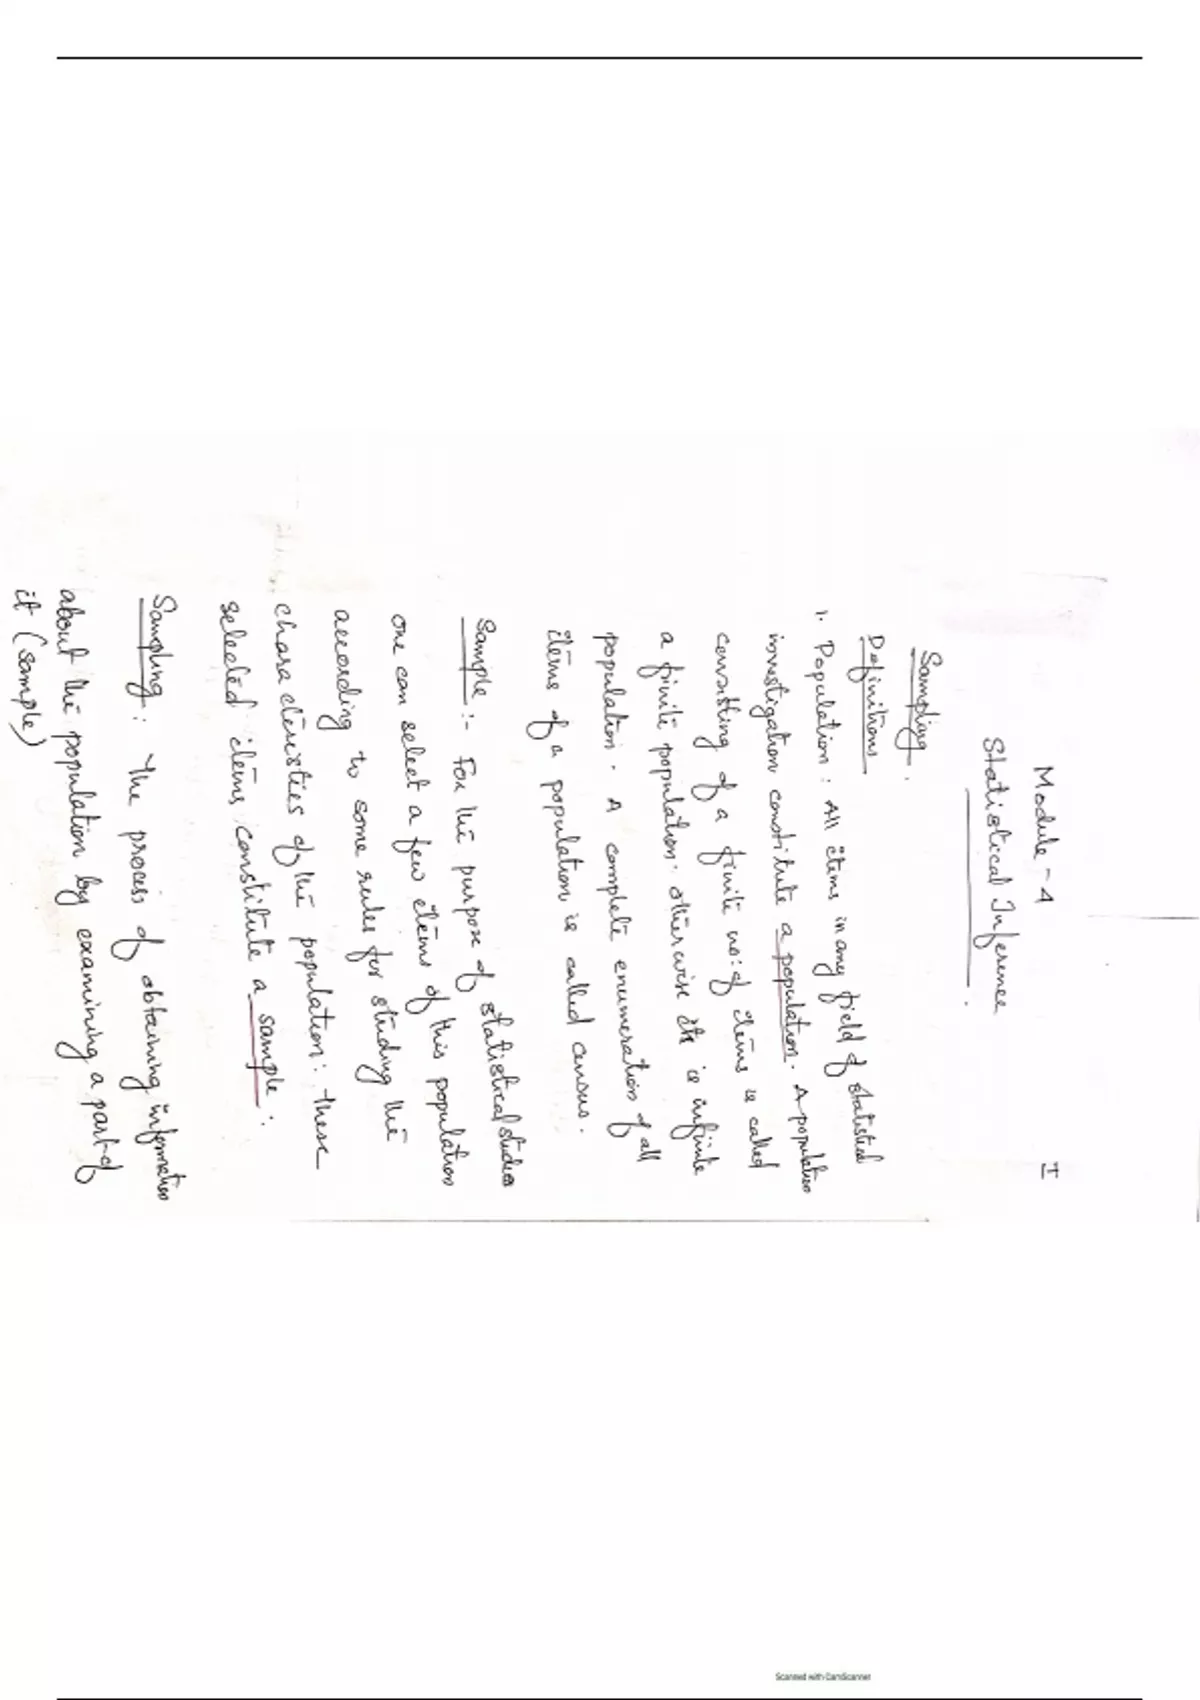 Module - 4
I
Statistical Inference.
Sampling.
Definitions
1. Population : All items in any field of statistical
investigation constitute a population. A population
consisting of a finite no: of items is called
a finite population. otherwise it is infinite
population. A complete enumeration of all
items of a population is called census.
Sample :- For the purpose of statistical studies
one can select a few items of this population
according to some rules for studing the
characteristics of the population: these
selected items constitute a sample:.
Sampling : The process of obtaining information
about the population by examining a part of
it (sample)
Scanned with CamScanner